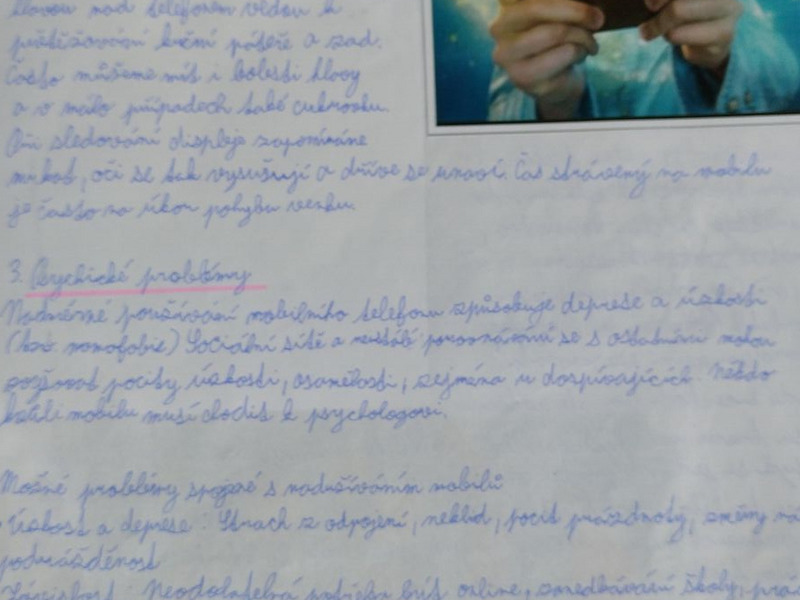 hlavou nad telefonem vedou k
přetěžování krční páteře a zad.
Často můžeme mít i bolesti hlavy
a v málo případech také cukrovku.
Při sledování displeje zapomínáme
mrkat, oči se tak vysušují a dříve se unaví. Čas strávený na mobilu
je často na úkor pohybu venku.
3. Psychické problémy
Nadměrné používání mobilního telefonu způsobuje deprese a úzkosti
(tzv. nomofobie) Sociální sítě a neustálé porovnávání se s ostatními mohou
pocity úzkosti, osamělosti, zejména u dospívajících. Někdo
kvůli mobilu musí chodit k psychologovi.
Možné problémy spojené s nadužíváním mobilů
Úzkost a deprese: Strach z odpojení, neklid, pocit prázdnoty, změny
podrážděnost
Závislost: Neodolatelná potřeba být online, zanedbávání školy,